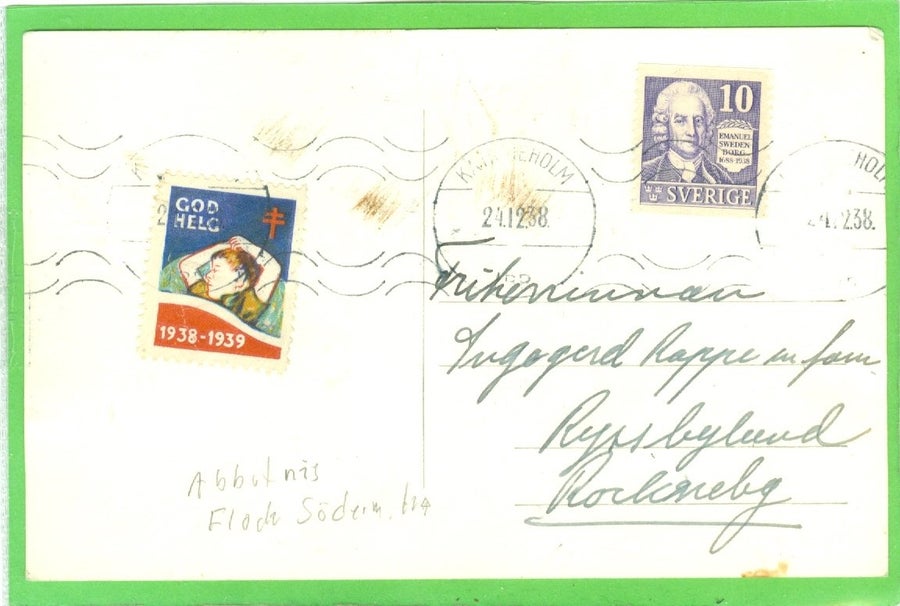 GOD
HELG
1938-1939
10
EMANUEL
SWEDEN
BORG
1688-1938
SVERIGE
24.12.38.
HOLM
24.12.38.
Friherrinnan
Ingegerd Rappe m fam
Ryssbylund
Rockneby
Flod Söderm.